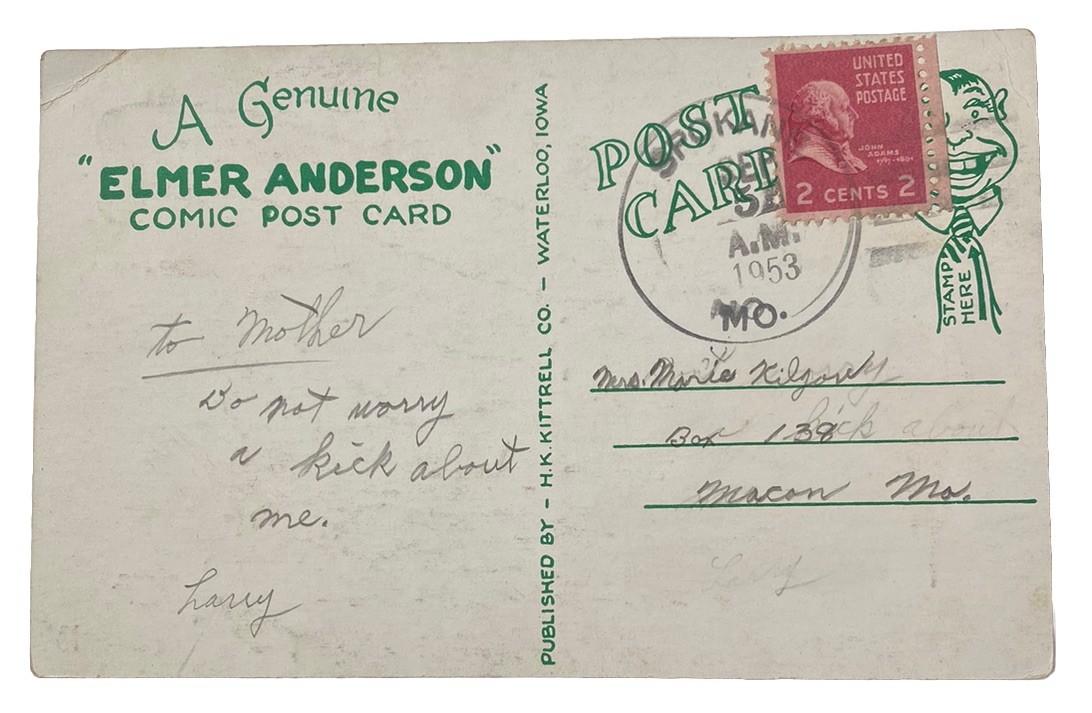 A Genuine
"ELMER ANDERSON"
COMIC POST CARD
to Mother
Do not worry
a kick about
me.
Larry
PUBLISHED BY - H.K. KITTRELL CO. - WATERLOO, IOWA
POST
CARD
A.M.
1953
MO.
UNITED
STATES
POSTAGE
JOHN
ADAMS
1797-1801
2 CENTS 2
STAMP
HERE
Mrs. Marie
Box 138
Macon Mo.
kick about
Larry